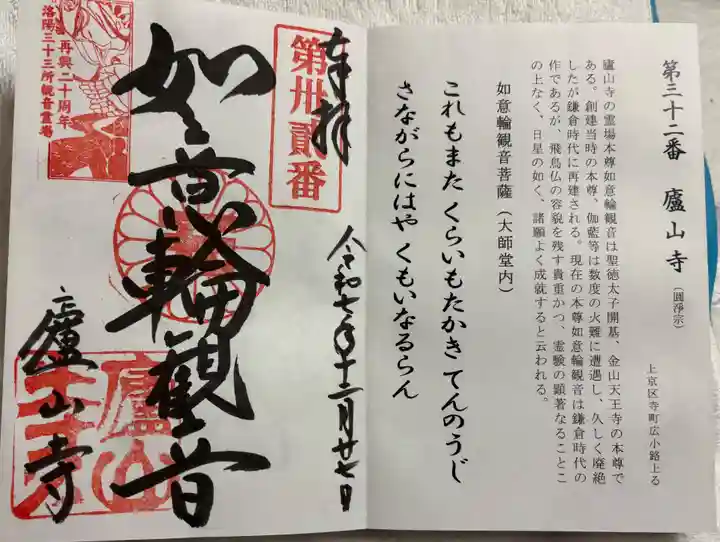 第三十二番 廬山寺(圓淨宗)
上京区寺町広小路上る
廬山寺の霊場本尊如意輪観音は聖徳太子開基、金山天王寺の本尊で
ある。創建当時の本尊、伽藍等は数度の火難に遭遇し、久しく廃絶
したが鎌倉時代に再建される。現在の本尊如意輪観音は鎌倉時代の
作であるが、飛鳥仏の容貌を残す貴重かつ、霊験の顕著なることこ
の上なく、日星の如く、諸願よく成就すると云われる。
如意輪観音菩薩(大師堂内)
これもまた くらいもたかき てんのうじ
さながらにはや くもいなるらん
奉拝
令和七年十二月廿七日
第卅貳番
如意輪観音
廬山寺
再興二十周年
洛陽三十三所観音霊場